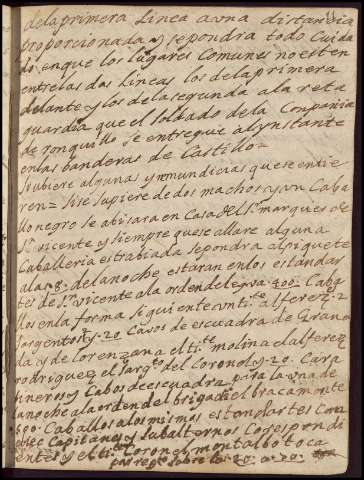 dela primera Linea auna distancia
proporcionada y sepondra todo Cuida
do enque los lugares Comunes no esten
entrelas dos Lineas los dela primera
delante y los dela segunda ala reta
guardia que el soldado dela Conpañia
de ronquillo se entregue alynstante
enlas banderas de Castillo=
si ubiere algunas ynmundicias que se entie
ren= sise supiere de dos machos y un Caba
llo negro se abisara en Casa del sr. marques de
sn. vicente y siempre que se allare alguna
Caballeria estrabiada sepondra al piquete
alas 8. delanoche estaran enlos estandar
tes de sn. vicente ala orden 400. Cabos
llos enla forma siguiente untite. alferez 2
sargentos y 20 Cavos de escuadra de Grana
da y de Lorenzana el tite. molina el alferez
rodriguez el sargto. del Coronel y 20. Cara
bineros y Cabos de escuadra para la una de
lanoche ala orden del brigadi el bracamonte
690. Caballos alos mismos estandartes Con
Capitanes y subalternos Corespondi
entes y el Coronel montalbo toca